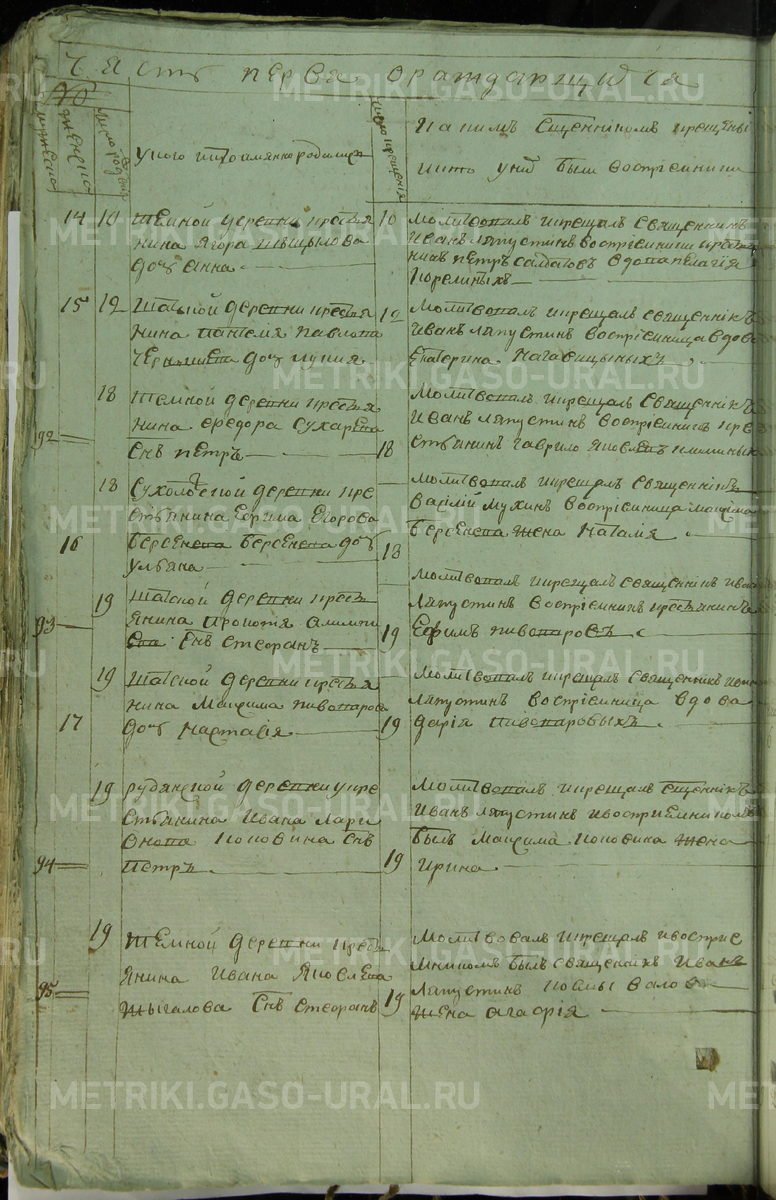 Часть первая ораждающихся
№
мужеска
женска
число рождения
У кого кто имянно родился
число крещения
На каимъ сщенникомъ крещены
и кто у ниъ были восприемники
14 10 Темной деревни крестья
нина Ягора
дочь Анна
10 Молитвовалъ и крещалъ священникъ
Иванъ Ляпустинъ восприемники крестья
нинъ петръ салдатовъ вдова пелагія
Кореліныхъ
15 12 Шатской деревни крестья
нина Пантелея Павлова
дочь лукия
12 Молитвовалъ и крещалъ священникъ
Иванъ Ляпустинъ восприемница вдова
Екатерина Нагавицыныхъ
18 Темной деревни крестья
нина Федора Сухарева
92 снъ петръ
18 Молитвовалъ и крещалъ священникъ
Иванъ Ляпустинъ восприемникъ кре
стьянинъ гаврило Яковлевъ
18 Сухоложской деревни кре
стьянина Ефима Егорова
16 Берсенева Берсенева дочь
ульяна
18 Молитвовалъ и крещалъ священникъ
Василій Мухинъ восприемница максіма
Берсенева жена Наталія
19 Шатской деревни кресть
янина Прокопія
93 снъ Стефанъ
19 Молитвовалъ и крещалъ священникъ Иванъ
Ляпустинъ восприемникъ крестьянинъ
Ефимъ пивоваровъ
19 Шатской деревни крестья
нина Максима пивоварова
17 дочь настасія
19 Молитвовалъ и крещалъ священникъ Иванъ
Ляпустинъ восприемница вдова
дарія пивоваровыхъ
19 рудянской деревни у кре
стьянина Ивана Лари
онова Коновина снъ
94 петръ
19 Молитвовалъ и крещалъ сщенникъ
Иванъ Ляпустинъ и восприемникомъ
былъ Максима Коновина жена
Ирина
19 Темной деревни кресть
янина Ивана Яковлева
95 Жыгалова снъ стефанъ
19 Молитвовалъ и крещалъ и восприе
мникомъ былъ священникъ Иванъ
Ляпустинъ
жена агафія
METRIKI.GASO-URAL.RU